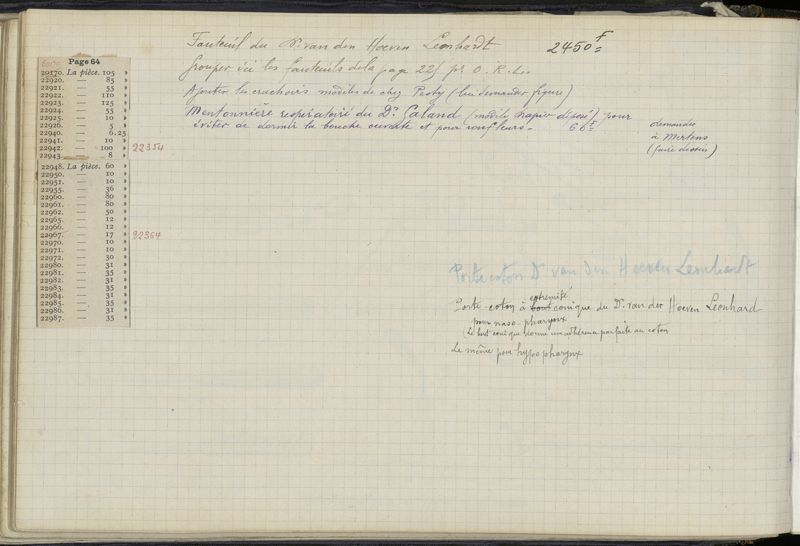 Fauteuil du Dr van den Hoeven Leonhardt 2450 F =
Grouper ici les fauteuils de la page 225 pr O. R. L.
Ajouter les crachoirs modèles de chez Pesty (lui demander figure)
Mentonnière respiratoire du Dr Galand (modèle papier déposé) pour
éviter de dormir la bouche ouverte et pour ronfleurs - 66 F =
demander
à Mertens
(faire dessin)
Page 64
20170. La pièce. 105 »
22920. — 85 »
22921. — 55 »
22922. — 110 »
22923. — 125 »
22924. — 55 »
22925. — 10 »
22930. — 5 »
22940. — 6.25
22941. — 10 »
22942. — 100 » 22354
22943. — 8 »
22948. La pièce. 60 »
22950. — 10 »
22951. — 10 »
22955. — 36 »
22960. — 80 »
22961. — 80 »
22962. — 50 »
22965. — 12 »
22966. — 12 »
22967. — 17 » 22364
22970. — 10 »
22971. — 10 »
22972. — 30 »
22980. — 31 »
22981. — 35 »
22982. — 31 »
22983. — 35 »
22984. — 31 »
22985. — 35 »
22986. — 31 »
22987. — 35 »
Porte coton Dr van den Hoeven Leonhardt
extrémité
Porte-coton à bout conique du Dr van der Hoeven Leonhard
pour naso-pharynx
(Le bout conique donne une adhérence parfaite au coton
Le même pour hypopharynx